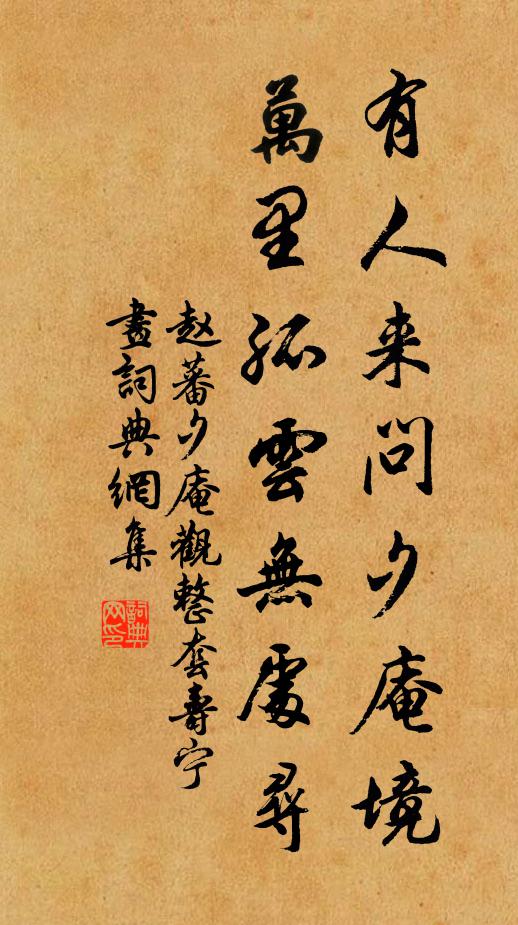 有人来問夕庵境
萬里孤雲無處尋
赵蕃夕庵觀整套壽宁
畫詞典網集
詞典
网印